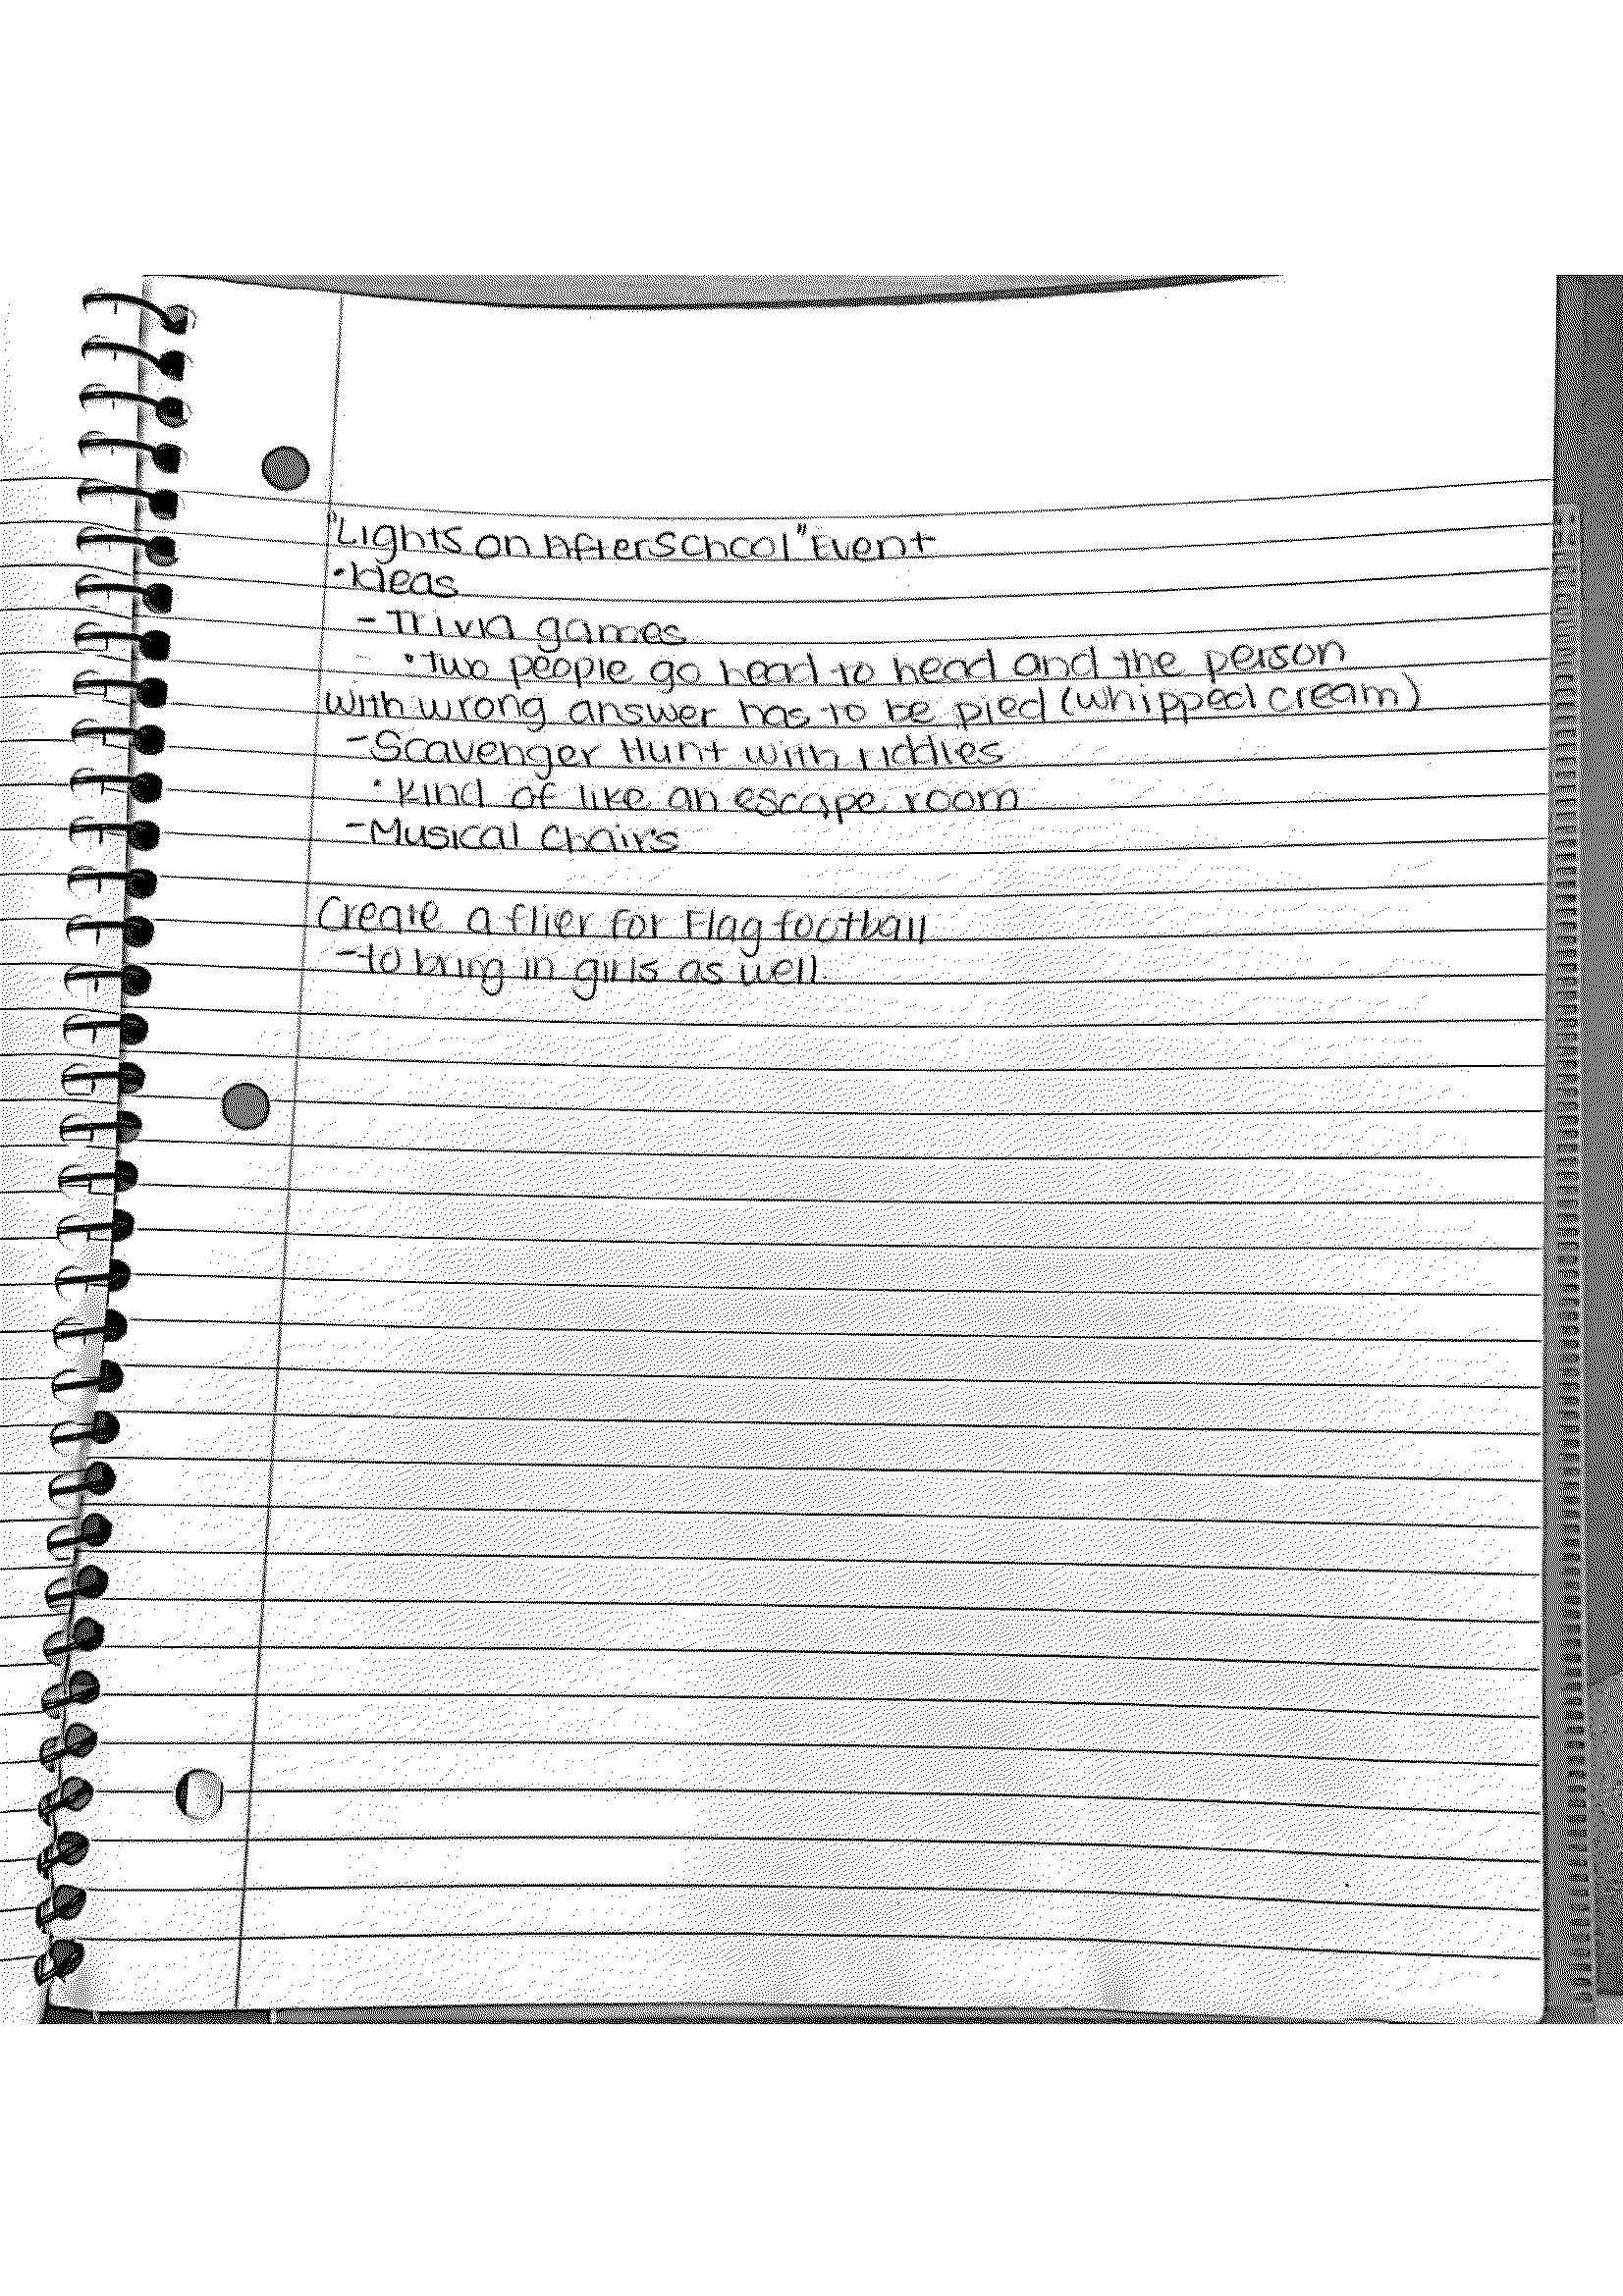 "Lights on AfterSchool" Event
• Ideas
- Trivia games
• Two people go head to head and the person
with wrong answer has to be pied (whipped cream)
- Scavenger Hunt with riddles
• Kind of like an escape room
- Musical Chairs
Create a flier for Flag football
- to bring in girls as well